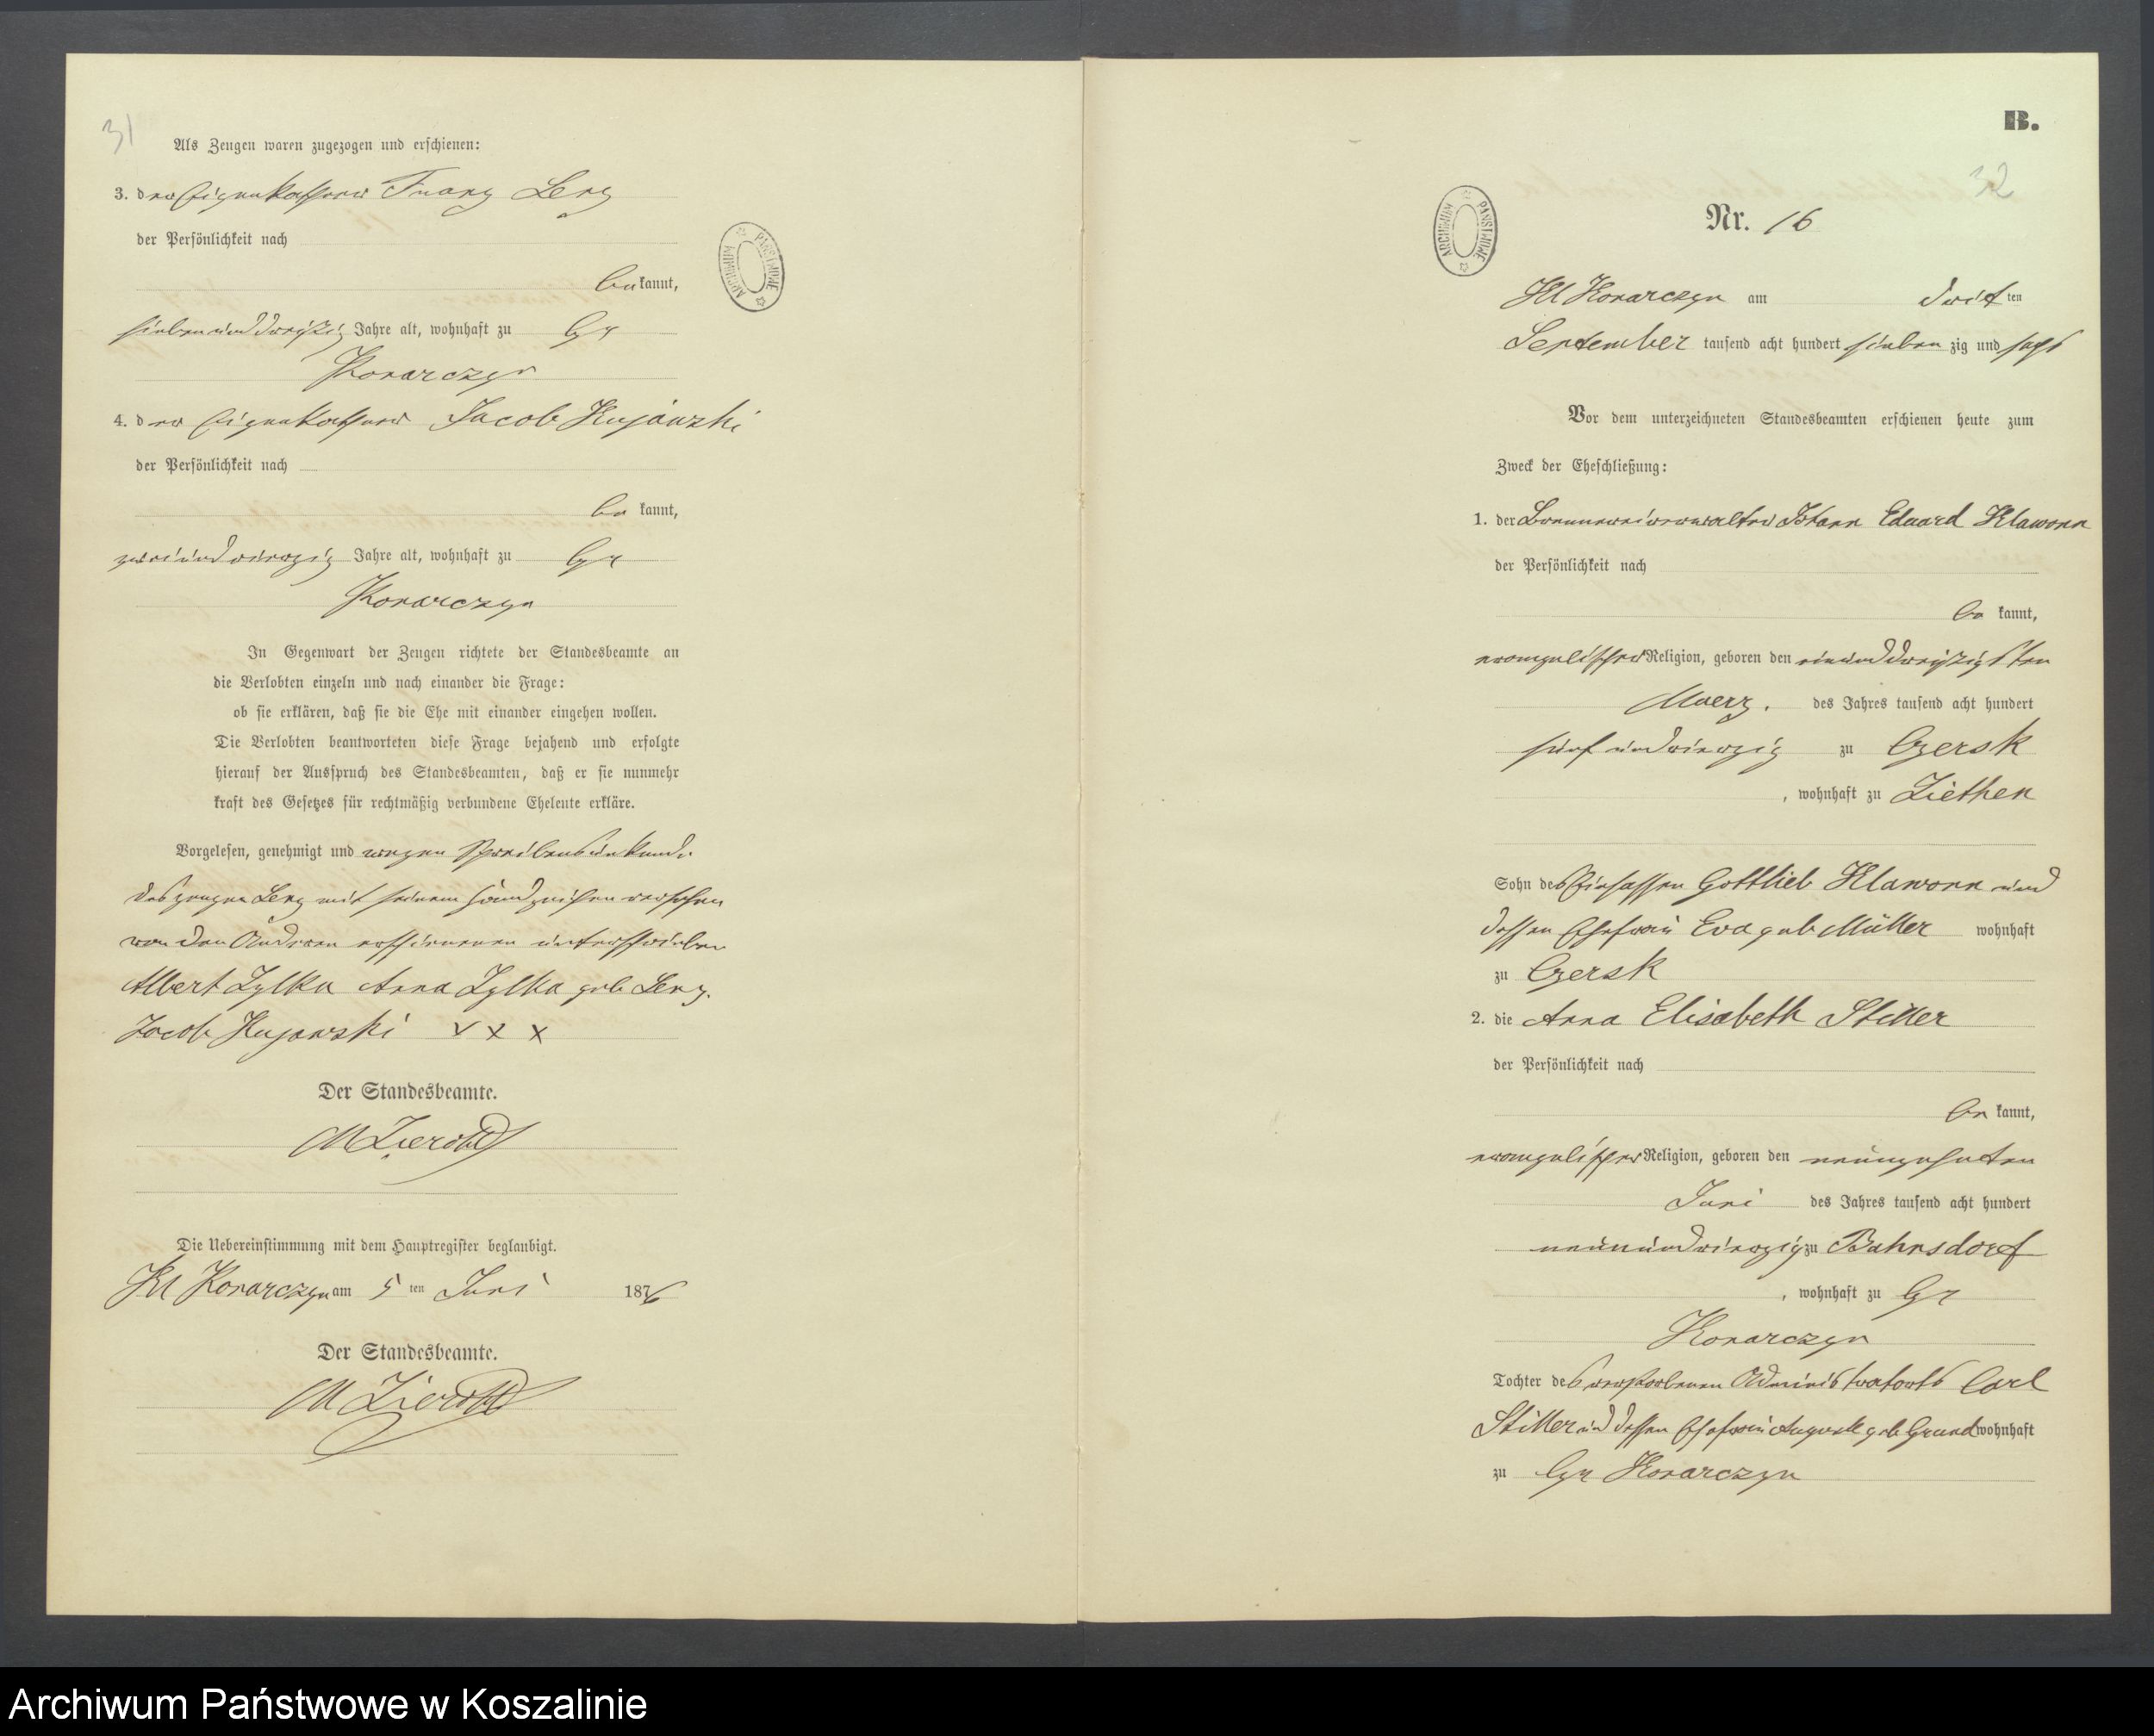 31
Als Zeugen waren zugezogen und erschienen:
3. der Eigenkathner Franz Lenz
der Persönlichkeit nach
bekannt,
siebenunddreißig Jahre alt, wohnhaft zu Gr
Konarczyn
4. der Eigenkathner Jacob Kujawski
der Persönlichkeit nach
bekannt,
zweiundvierzig Jahre alt, wohnhaft zu Gr
Konarczyn
In Gegenwart der Zeugen richtete der Standesbeamte an
die Verlobten einzeln und nach einander die Frage:
ob sie erklären, daß sie die Ehe mit einander eingehen wollen.
Die Verlobten beantworteten diese Frage bejahend und erfolgte
hierauf der Ausspruch des Standesbeamten, daß er sie nunmehr
kraft des Gesetzes für rechtmäßig verbundene Eheleute erkläre.
Vorgelesen, genehmigt und wegen Schreibensunkunde
des Zeugen Lenz mit seinem Handzeichen versehen
von den Anderen erschienenen unterschrieben
Albert Zylka Anna Zylka geb Lenz.
Jacob Kujawski x x x
Der Standesbeamte.
M Zierold
Die Uebereinstimmung mit dem Hauptregister beglaubigt.
Kl Konarczyn am 5 ten Juni 1876
Der Standesbeamte.
M Zierold
ARCHIWUM PAŃSTWOWE
B.
32
ARCHIWUM PAŃSTWOWE
Nr. 16
Kl Konarczyn am dritten
September tausend acht hundert siebenzig und sechs
Vor dem unterzeichneten Standesbeamten erschienen heute zum
Zweck der Eheschließung:
1. der Brennereiverwalter Johann Eduard Klawonn
der Persönlichkeit nach
bekannt,
evangelischer Religion, geboren den einunddreißigsten
Maerz. des Jahres tausend acht hundert
fünfundvierzig zu Czersk
, wohnhaft zu Ziethen
Sohn des Einsassen Gottlieb Klawonn und
dessen Ehefrau Eva geb Müller wohnhaft
zu Czersk
2. die Anna Elisabeth Stiller
der Persönlichkeit nach
bekannt,
evangelischer Religion, geboren den neunzehnten
Juni des Jahres tausend acht hundert
neunundvierzig zu Bahnsdorf
, wohnhaft zu Gr
Konarczyn
Tochter des verstorbenen Administrators Carl
Stiller und dessen Ehefrau Auguste geb Grund wohnhaft
zu Gr Konarczyn
Archiwum Państwowe w Koszalinie